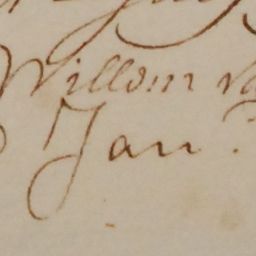 Willem va
Jan.